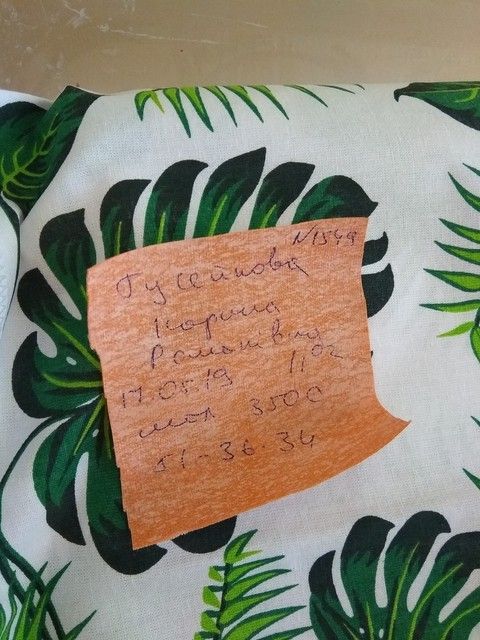 N 1549
Гусейнова
Карина
Романовна
17.05.19 11⁰²
мал 3500
51-36-34